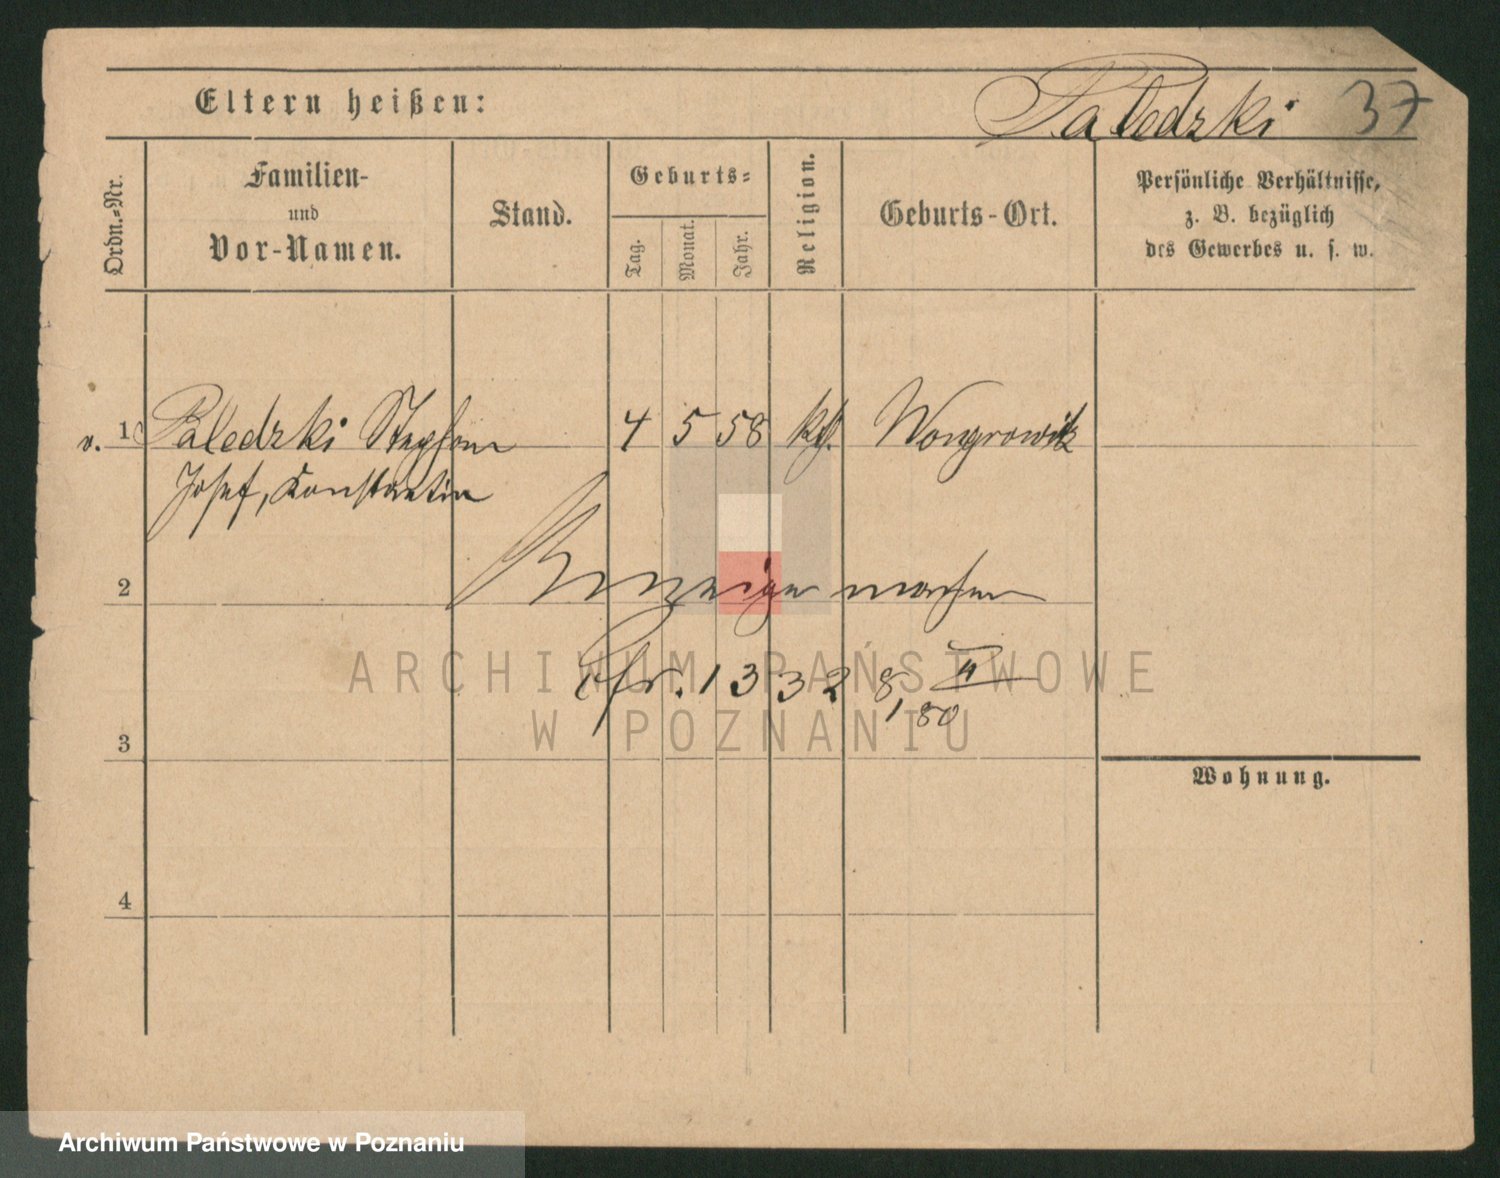 Eltern heißen:
Paledzki 37
Ordn.=Nr.
Familien-
und
Vor-Namen.
Stand.
Geburts=
Tag.
Monat.
Jahr.
Religion.
Geburts-Ort.
Persönliche Verhältnisse,
z. B. bezüglich
des Gewerbes u. s. w.
v. 1 Paledzki Stephan 4 5 58 kth. Wongrowitz
Josef, Konstantin
2
Anzeige machen
ARCHIWUM PAŃSTWOWE
W POZNANIU
13328, II
1,80
3
Wohnung.
4
Archiwum Państwowe w Poznaniu